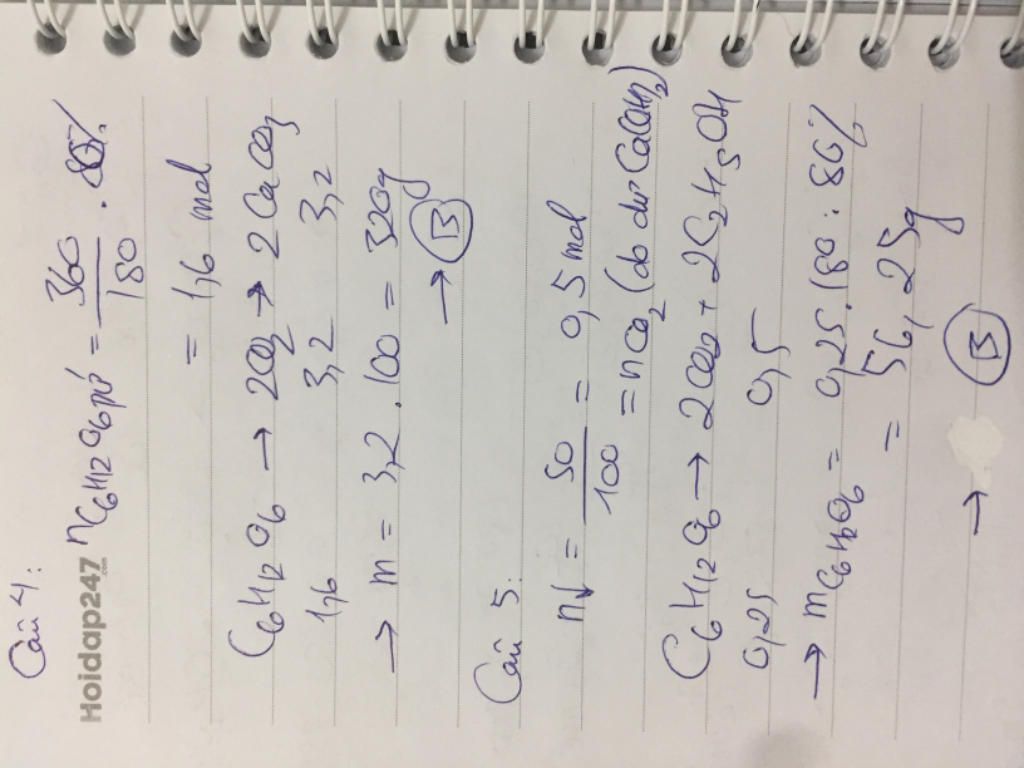 Câu 4:
Hoidap247
.com
nC₆H₁₂O₆ pứ = 360/180 . 80%.
= 1,6 mol
C₆H₁₂O₆ → 2CO₂ → 2CaCO₃
1,6 3,2 3,2
→ m = 3,2 . 100 = 320g
→ B
Câu 5:
n↓ = 50/100 = 0,5 mol
= nCO₂ (do dư Ca(OH)₂)
C₆H₁₂O₆ → 2CO₂ + 2C₂H₅OH
0,25 0,5
→ mC₆H₁₂O₆ = 0,25 . 180 : 80%
= 56,25g
→ B